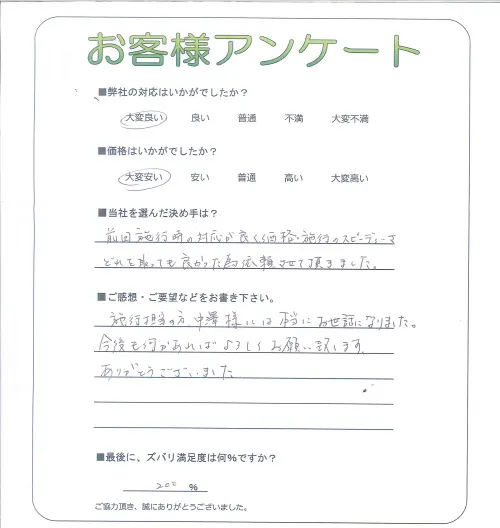 お客様アンケート
■弊社の対応はいかがでしたか？
大変良い 良い 普通 不満 大変不満
■価格はいかがでしたか？
大変安い 安い 普通 高い 大変高い
■当社を選んだ決め手は？
前回施行時の対応が良く価格・施行のスピーディーさ
どれを取っても良かった為依頼させて頂きました。
■ご感想・ご要望などをお書き下さい。
施行担当の方、中澤様には本当にお世話になりました。
今後も何かあればよろしくお願い致します。
ありがとうございました
■最後に、ズバリ満足度は何％ですか？
200 ％
ご協力頂き、誠にありがとうございました。